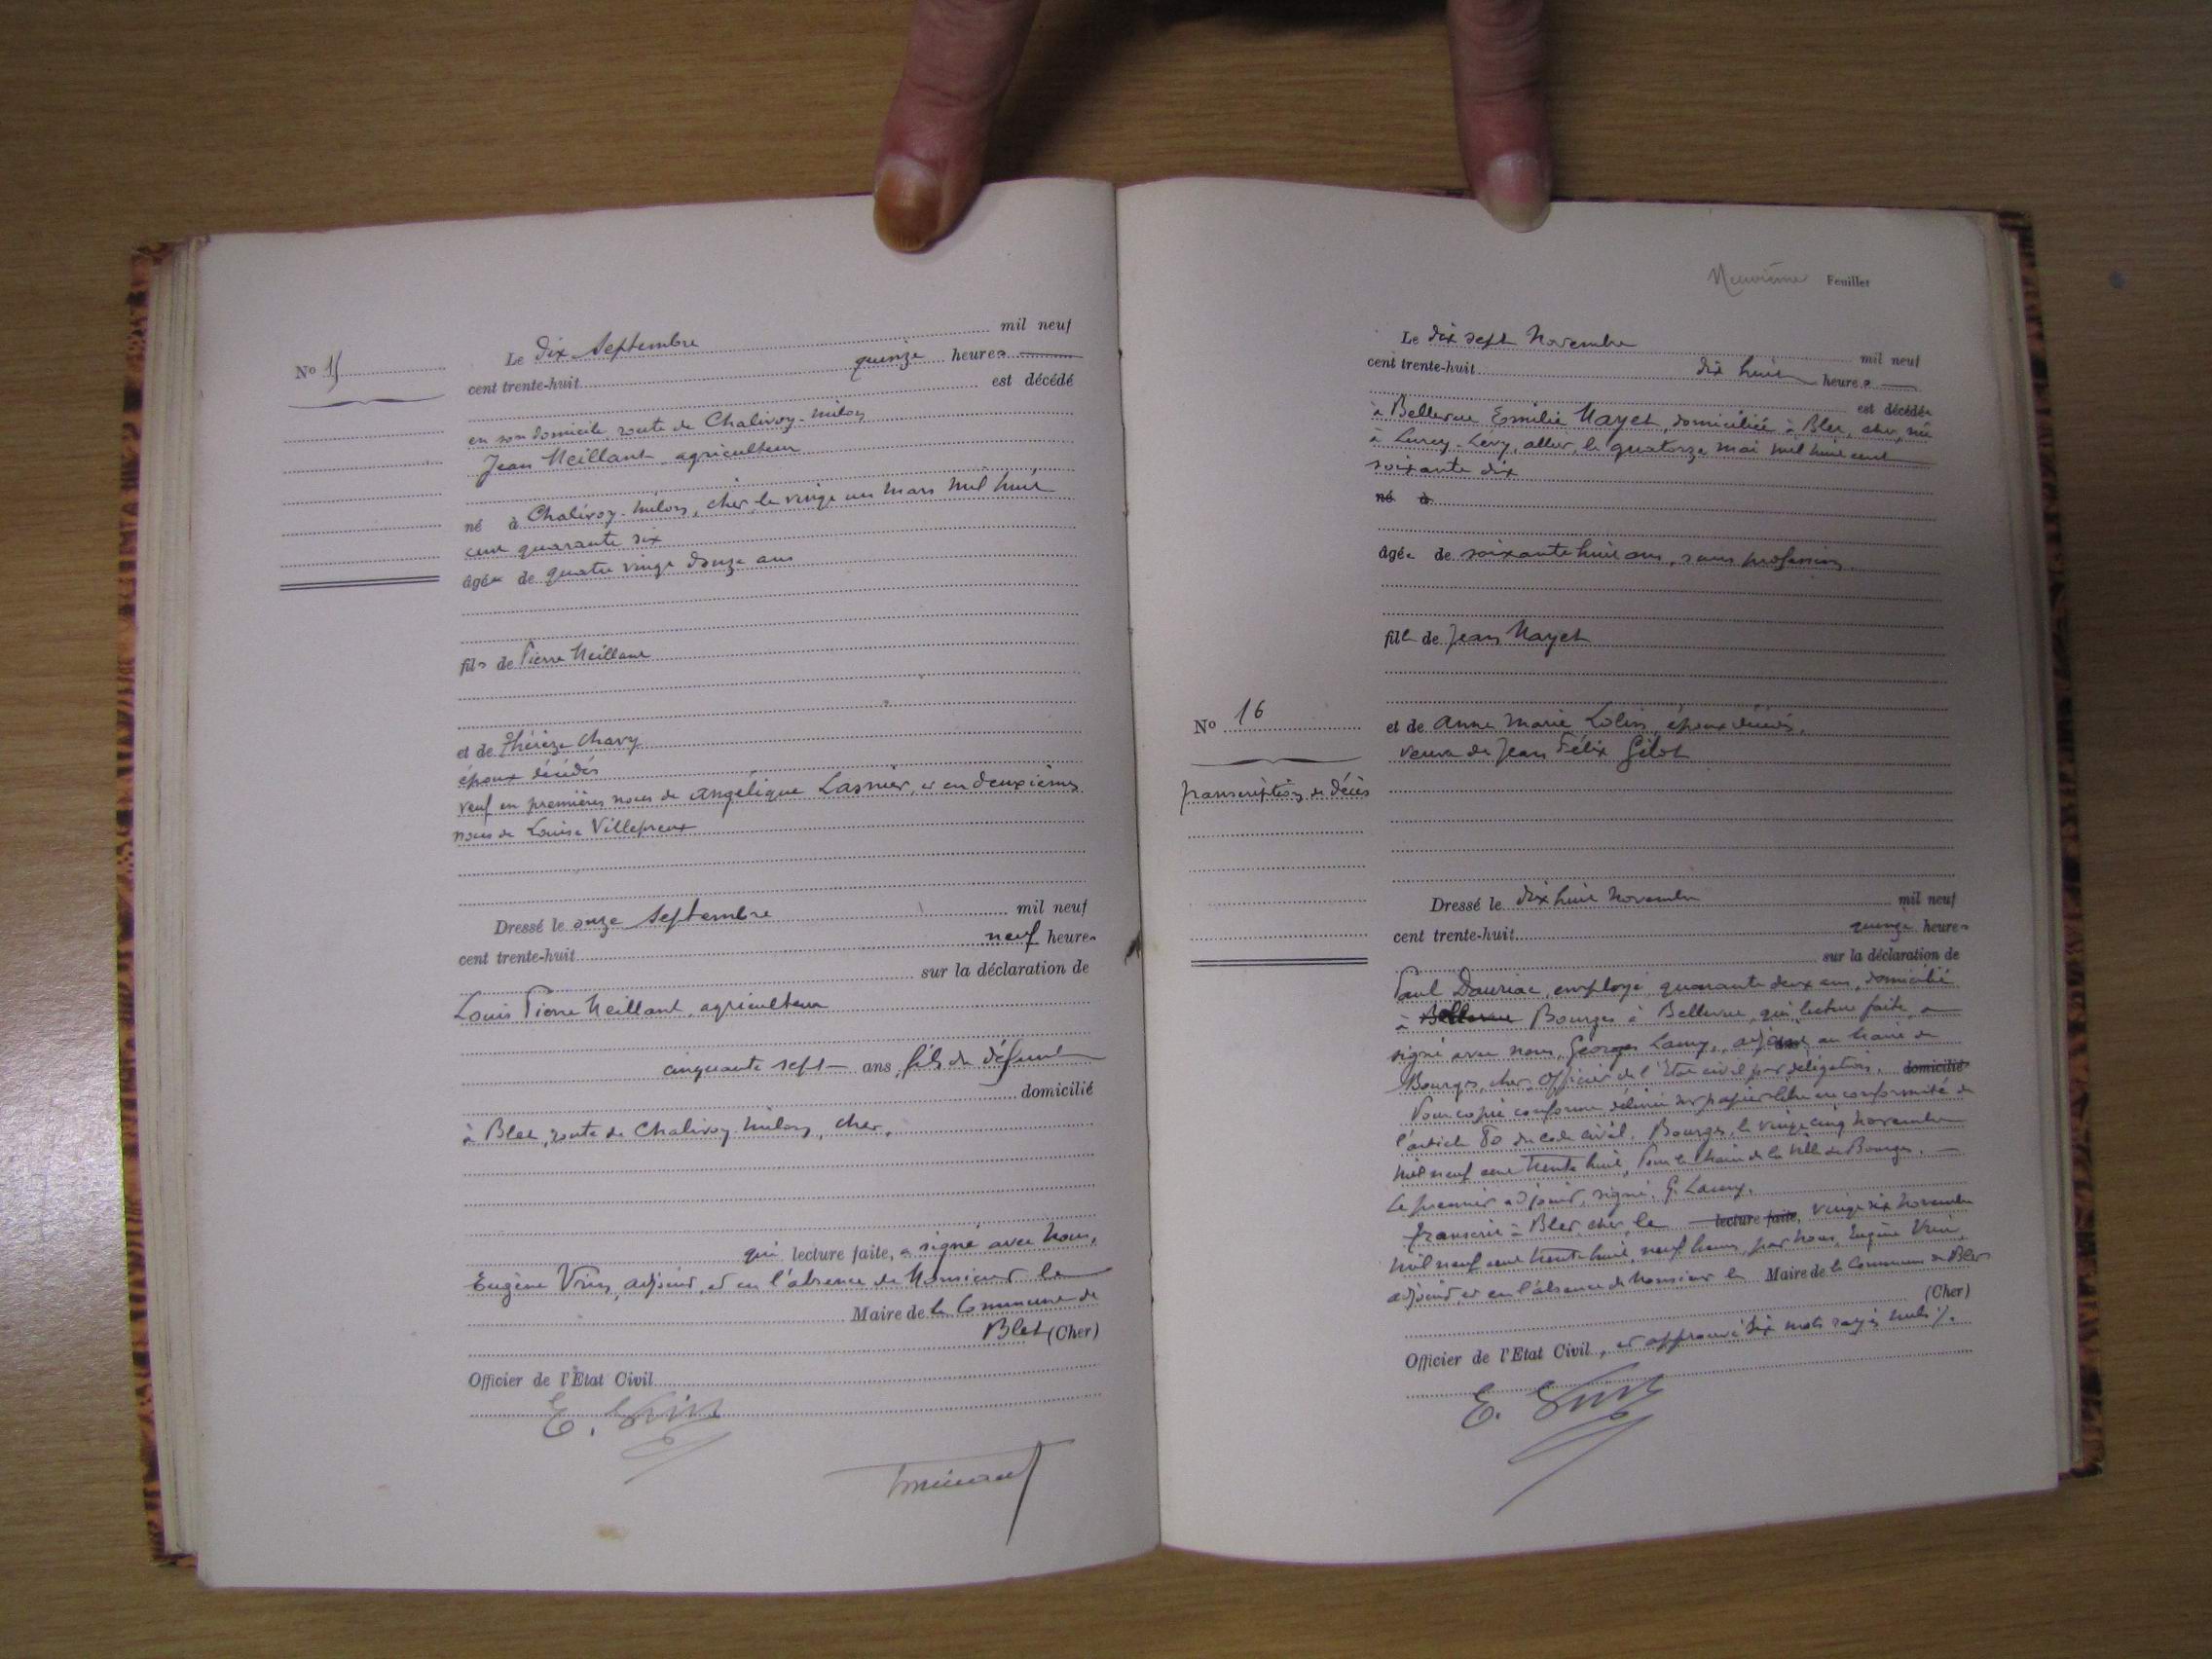 Nº 15
Le dix Septembre mil neuf
cent trente-huit quinze heures
est décédé
en son domicile, route de Chalivoy-Milon
Jean Meillant, agriculteur
né à Chalivoy-Milon, cher, le vingt un mars mil huit
cent quarante six
âgé de quatre vingt douze ans
fils de Pierre Meillant
et de Thérèze Chavy
époux décédés
veuf en premières noces de Angélique Lasnier, et en deuxièmes
noces de Louise Villepreux
Dressé le onze Septembre mil neuf
cent trente-huit neuf heures
sur la déclaration de
Louis Pierre Meillant, agriculteur
cinquante sept ans, fils du défunt
domicilié
à Blet, route de Chalivoy-Milon, cher,
qui lecture faite, a signé avec Nous,
Eugène Vrin, adjoint, et en l'absence de Monsieur le
Maire de la Commune de
Blet (Cher)
Officier de l'Etat Civil
E. Vrin
Neuvième Feuillet
Nº 16
transcription de décès
Le dix sept Novembre mil neuf
cent trente-huit dix huit heures
est décédée
à Bellevue Emilie Mayet, domiciliée à Blet, cher, née
à Lurcy-Levy, allier, le quatorze mai mil huit cent
soixante dix
né à
âgée de soixante huit ans, sans profession
fille de Jean Mayet
et de Anne Marie Lolin, époux décédés,
veuve de Jean Félix Gilot
Dressé le dix huit Novembre mil neuf
cent trente-huit quinze heures
sur la déclaration de
Paul Dauriac, employé, quarante deux ans, domicilié
à Bellevue Bourges à Bellevue, qui, lecture faite, a
signé avec nous, Georges Lamy, adjoint au Maire de
Bourges, cher, Officier de l'Etat civil par délégation. domicilié
Pour copie conforme délivrée sur papier libre en conformité de
l'article 80 du code civil. Bourges, le vingt cinq novembre
mil neuf cent trente huit, Pour le Maire de la Ville de Bourges.
Le premier adjoint, signé: G. Lamy.
Transcrit à Blet, cher, le lecture faite, vingt six novembre
mil neuf cent trente huit, neuf heures, par Nous, Eugène Vrin,
adjoint, et en l'absence de Monsieur le Maire de la Commune de Blet
(Cher)
Officier de l'Etat Civil, et approuvé six mots rayés nuls
E. Vrin